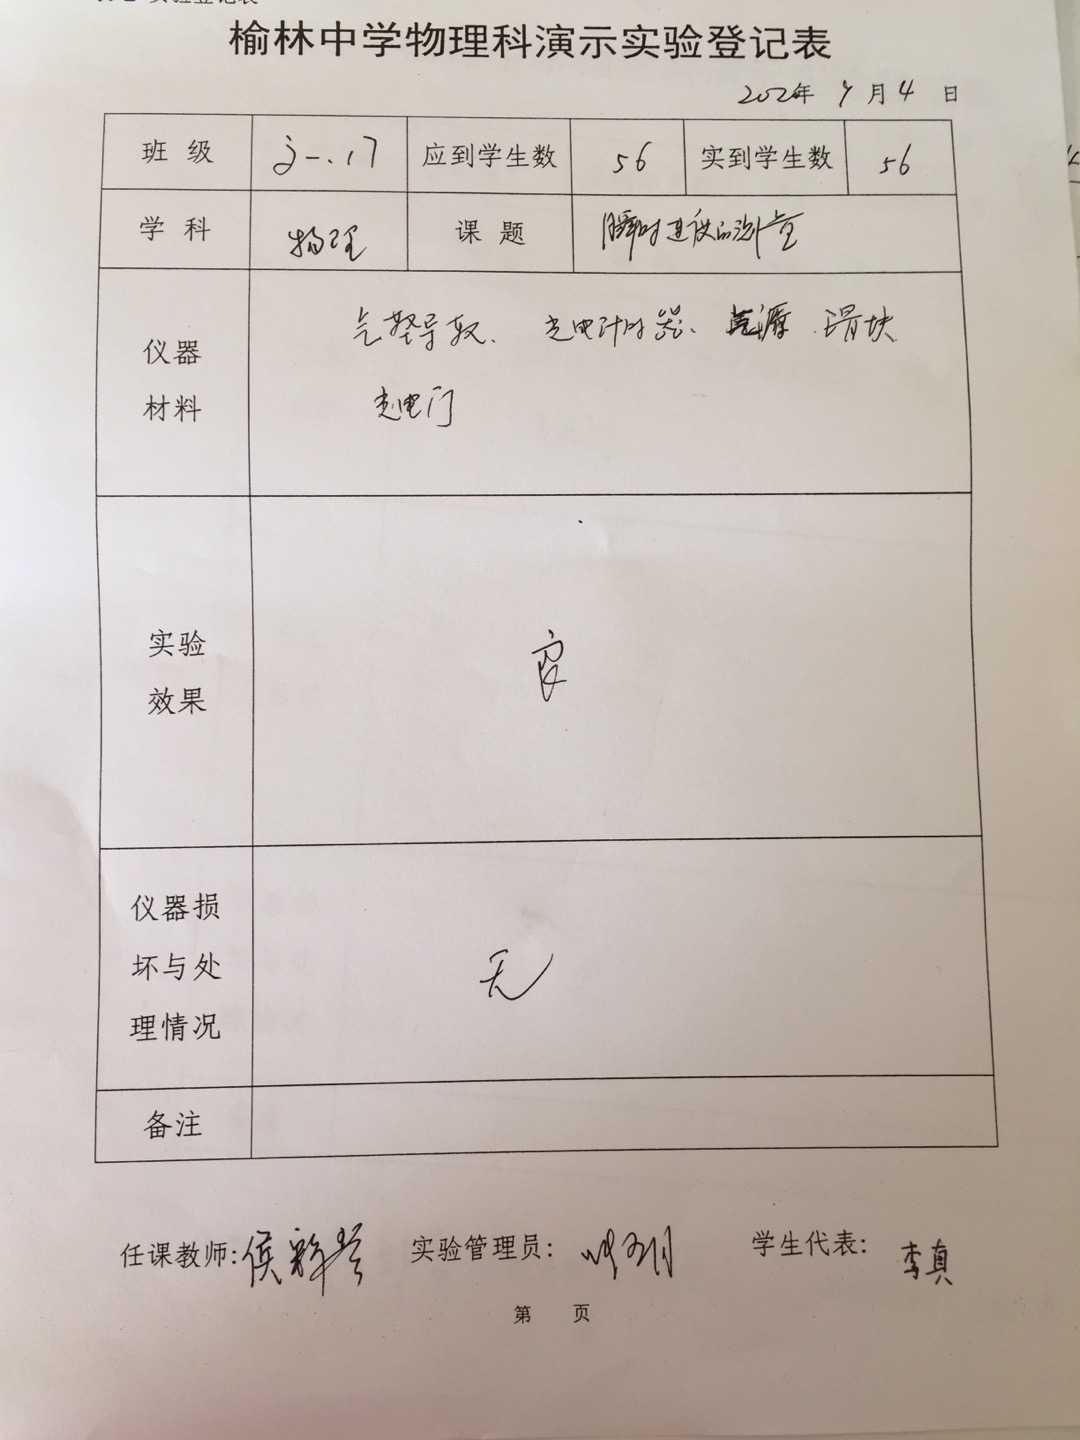 实验登记表
榆林中学物理科演示实验登记表
年 9 月 4 日
班 级 17 应到学生数 56 实到学生数 56
学 科 物理 课 题 瞬时速度的测量
仪器
材料
气垫导轨、光电计时器、气源、滑块
光电门
实验
效果
良
仪器损
坏与处
理情况
无
备注
任课教师:侯 实验管理员: 学生代表: 李真
第 页